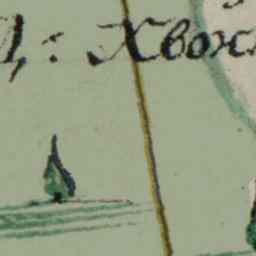 Л,: Хвож